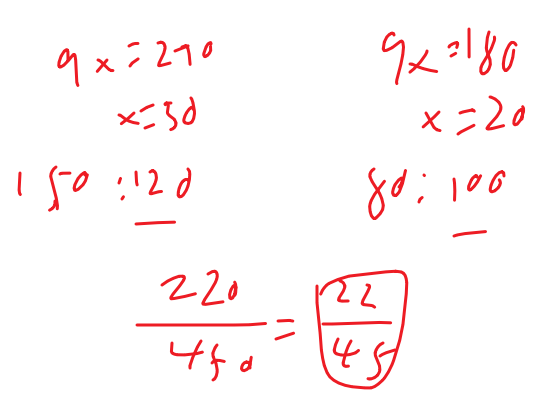 9x=270
x=30
150:120
9x=180
x=20
80:100
220/450=22/45